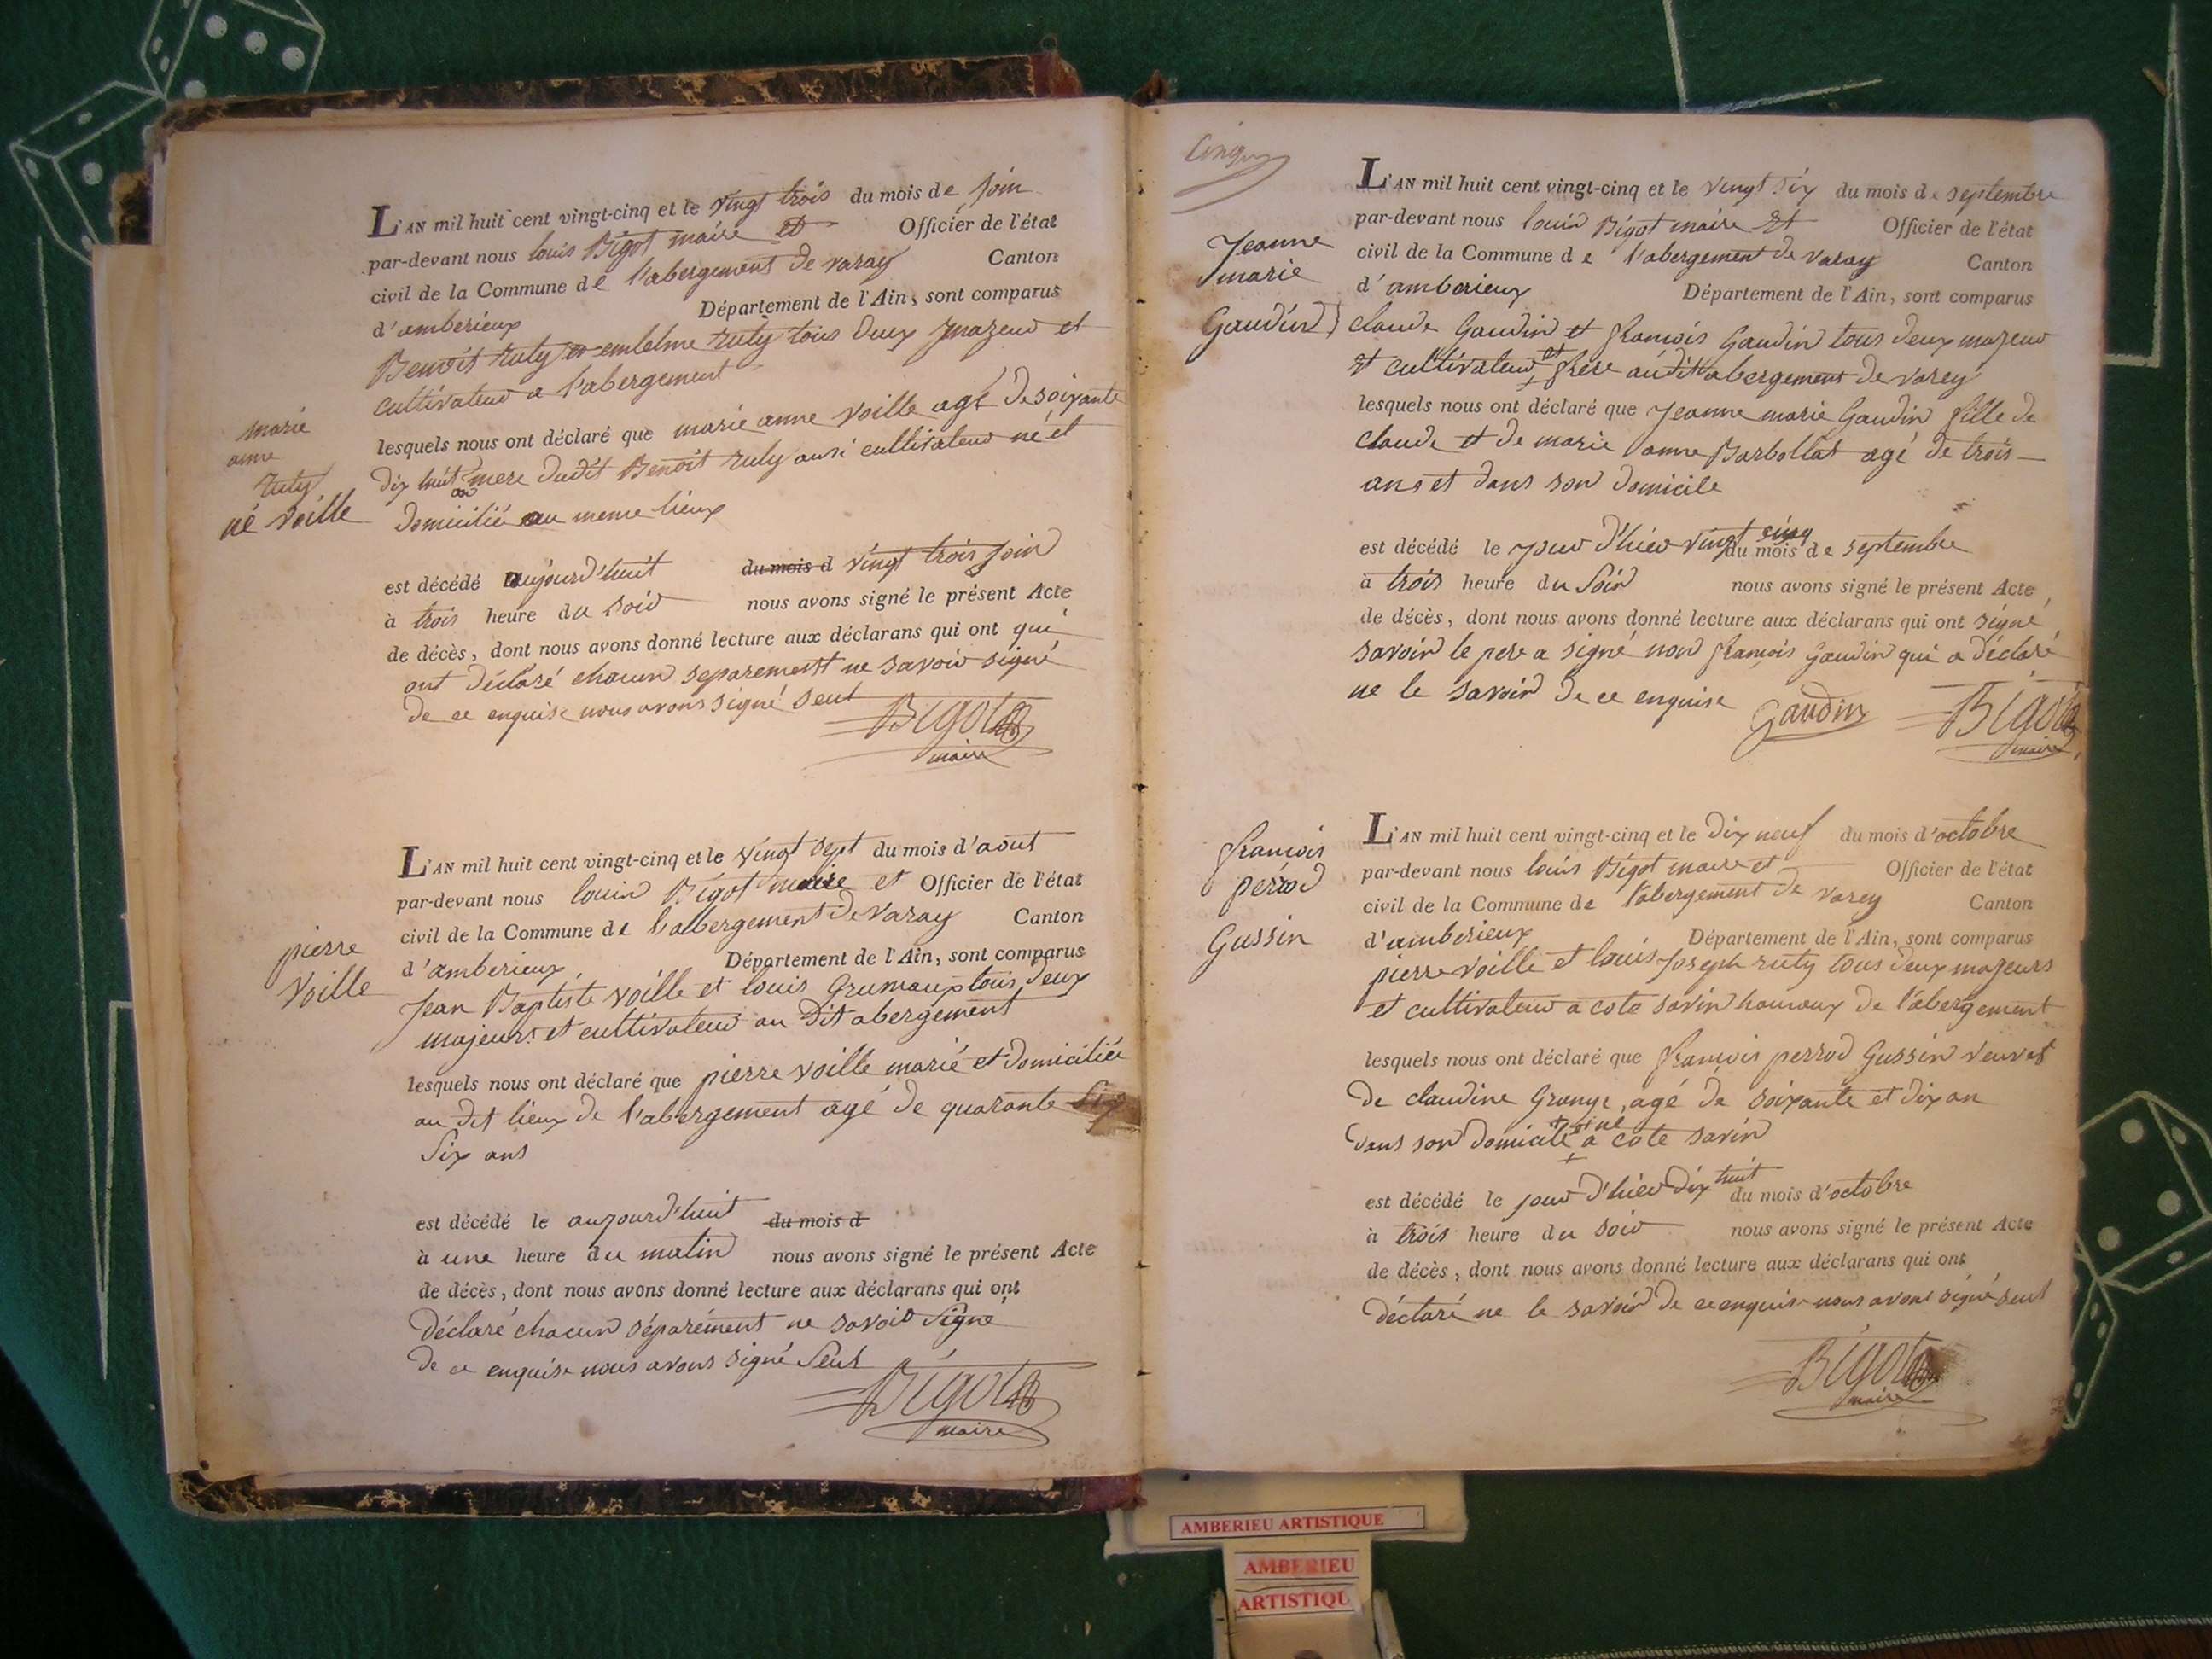 L'AN mil huit cent vingt-cinq et le vingt trois du mois de join
par-devant nous louis Bigot maire et Officier de l'état
civil de la Commune de l'abergement de varay Canton
d'amberieux Département de l'Ain, sont comparus
Benoit ruty et emlelme ruty tous deux majeur et
cultivateur a l'abergement
marie
anne
ruty
né voille
lesquels nous ont déclaré que marie anne voille agé de soixante
dix huit an mere dudit Benoit ruty ausi cultivateur né et
domicilié au meme lieux
est décédé aujourd'huit du mois d vingt trois join
à trois heure du soir nous avons signé le présent Acte
de décès, dont nous avons donné lecture aux déclarans qui ont qui
ont déclaré chacun separement ne savoir signé
de ce enquise nous avons signé seul
Bigot
maire
L'AN mil huit cent vingt-cinq et le vingt sept du mois d'aout
par-devant nous louis Bigot maire et Officier de l'état
civil de la Commune de l'abergement de varay Canton
d'amberieux Département de l'Ain, sont comparus
pierre
voille
Jean Baptiste voille et louis Grumaux tous deux
majeurs et cultivateur au dit abergement
lesquels nous ont déclaré que pierre voille marié et domiciliée
au dit lieux de l'abergement agé de quarante six
Six ans
est décédé le aujourd'huit du mois d
à une heure du matin nous avons signé le présent Acte
de décès, dont nous avons donné lecture aux déclarans qui ont
déclaré chacun séparément ne savoir signé
de ce enquise nous avons signé seul
Bigot
maire
Cinq
L'AN mil huit cent vingt-cinq et le vingt six du mois de septembre
par-devant nous louis Bigot maire et Officier de l'état
civil de la Commune de l'abergement de varay Canton
d'amberieux Département de l'Ain, sont comparus
Jeanne
marie
Gaudin
claude Gaudin et francois Gaudin tous deux majeur
et cultivateur et frere audit abergement de varey
lesquels nous ont déclaré que Jeanne marie Gaudin fille de
claude et de marie anne Barbollat agé de trois
ans et dans son domicile
est décédé le jour d'hier vingt cinq du mois de septembre
à trois heure du soir nous avons signé le présent Acte
de décès, dont nous avons donné lecture aux déclarans qui ont signé
savoir le pere a signé non francois Gaudin qui a déclaré
ne le savoir de ce enquise
Gaudin Bigot
maire
L'AN mil huit cent vingt-cinq et le dix neuf du mois d'octobre
par-devant nous louis Bigot maire et Officier de l'état
civil de la Commune de l'abergement de varey Canton
d'amberieux Département de l'Ain, sont comparus
francois
perrod
Gussin
pierre voille et louis Joseph ruty tous deux majeurs
et cultivateur a cote savin hamaux de l'abergement
lesquels nous ont déclaré que francois perrod Gussin veuvet
de claudine Grange, agé de soixante et dix an
dans son domicile et né a cote savin
est décédé le jour d'hier dix huit du mois d'octobre
à trois heure du soir nous avons signé le présent Acte
de décès, dont nous avons donné lecture aux déclarans qui ont
déclaré ne le savoir de ce enquise nous avons signé seul
Bigot
maire
AMBERIEU ARTISTIQUE
AMBERIEU
ARTISTIQU